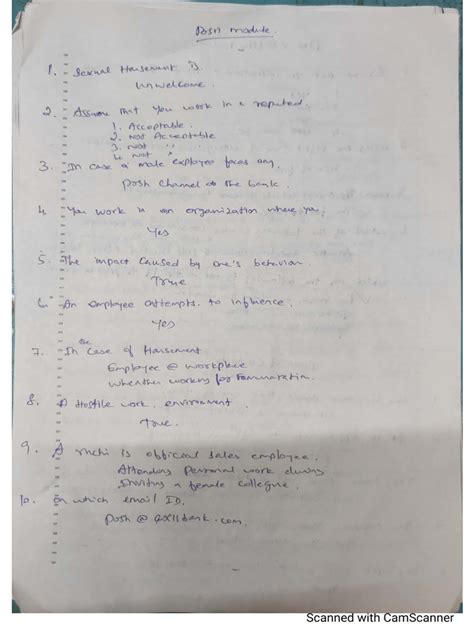 Posh module.
1. Sexual Harsement is.
Unwelcome.
2. Assume that you work in a reputed
1. Acceptable.
2. Not Acceptable
3. not "
4. not "
3. In case a male employee faces any,
Posh Channel of the bank.
4. You work in an organization where you
Yes
5. The impact caused by one's behavior.
True
6. An employee attempts to influence.
Yes
7. In the Case of Harsement
Employee @ workplace
Whether working for
8. A Hostile work environment.
True.
9. A is official sales employee.
Attending Personal work during
a female
10. On which email ID.
Posh @ axisbank.com.
Scanned with CamScanner